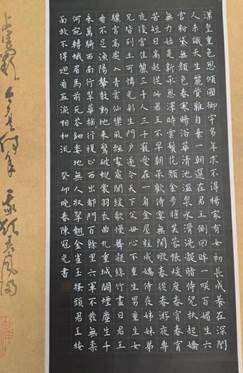 漢皇重色思傾國御宇多年求不得楊家有女初長成養在深閨
人未識天生麗質難自棄一朝選在君王側回眸一笑百媚生六
宮粉黛無顏色春寒賜浴華清池溫泉水滑洗凝脂侍兒扶起嬌
無力始是新承恩澤時雲鬢花顏金步搖芙蓉帳暖度春宵春宵
苦短日高起從此君王不早朝承歡侍宴無閑暇春從春遊夜專
夜後宮佳麗三千人三千寵愛在一身金屋妝成嬌侍夜姊妹弟
兄皆列土可憐光彩生門戶遂令天下父母心不重生男重生女
驪宮高處入青雲仙樂風飄處處聞緩歌慢舞凝絲竹盡日君王
看不足漁陽鼙鼓動地來驚破霓裳羽衣曲九重城闕煙塵生千
乘萬騎西南行翠華搖搖行復止西出都門百餘里六軍不發無奈
何宛轉蛾眉馬前死花鈿委地無人收翠翹金雀玉搔頭君王掩
面救不得回看血淚相和流 癸卯晚春陳冠光書